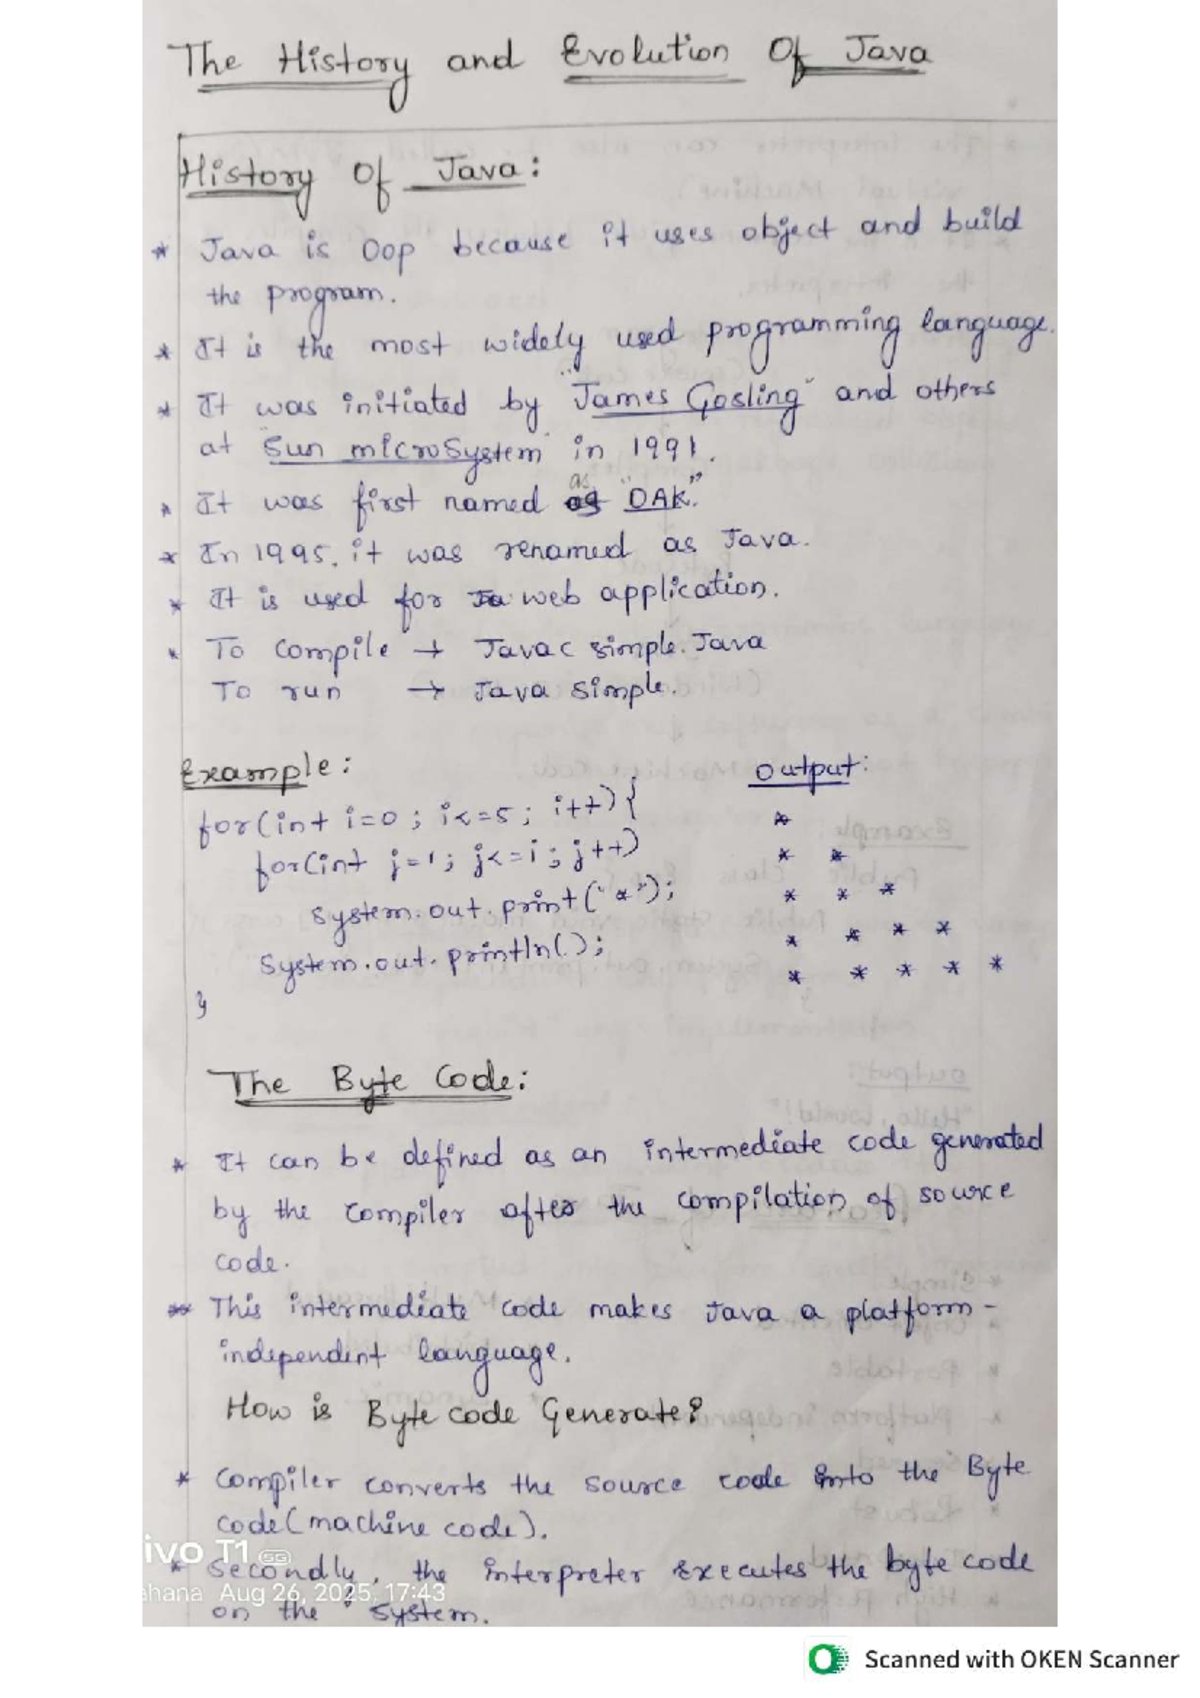 The History and Evolution Of Java
History Of Java:
* Java is OOP because it uses object and build
the program.
* It is the most widely used programming language.
* It was initiated by "James Gosling" and others
at "Sun microSystem" in 1991.
as
* It was first named as "OAK."
* In 1995, it was renamed as Java.
* It is used for Ja web application.
* To compile → Javac simple.Java
To run → Java simple.
Example: Output:
for(int i=0; i<=5; i++){ *
for(int j=1; j<=i; j++) * *
system.out.print("*"); * * *
System.out.println(); * * * *
} * * * * *
The Byte Code:
* It can be defined as an intermediate code generated
by the compiler after the compilation of source
code.
** This intermediate code makes Java a platform-
independent language.
How is Byte code Generate?
* Compiler converts the source code into the Byte
code(machine code).
vivo T1 5G
* Secondly, the interpreter executes the byte code
ahana Aug 26, 2025, 17:43
on the system.
Scanned with OKEN Scanner